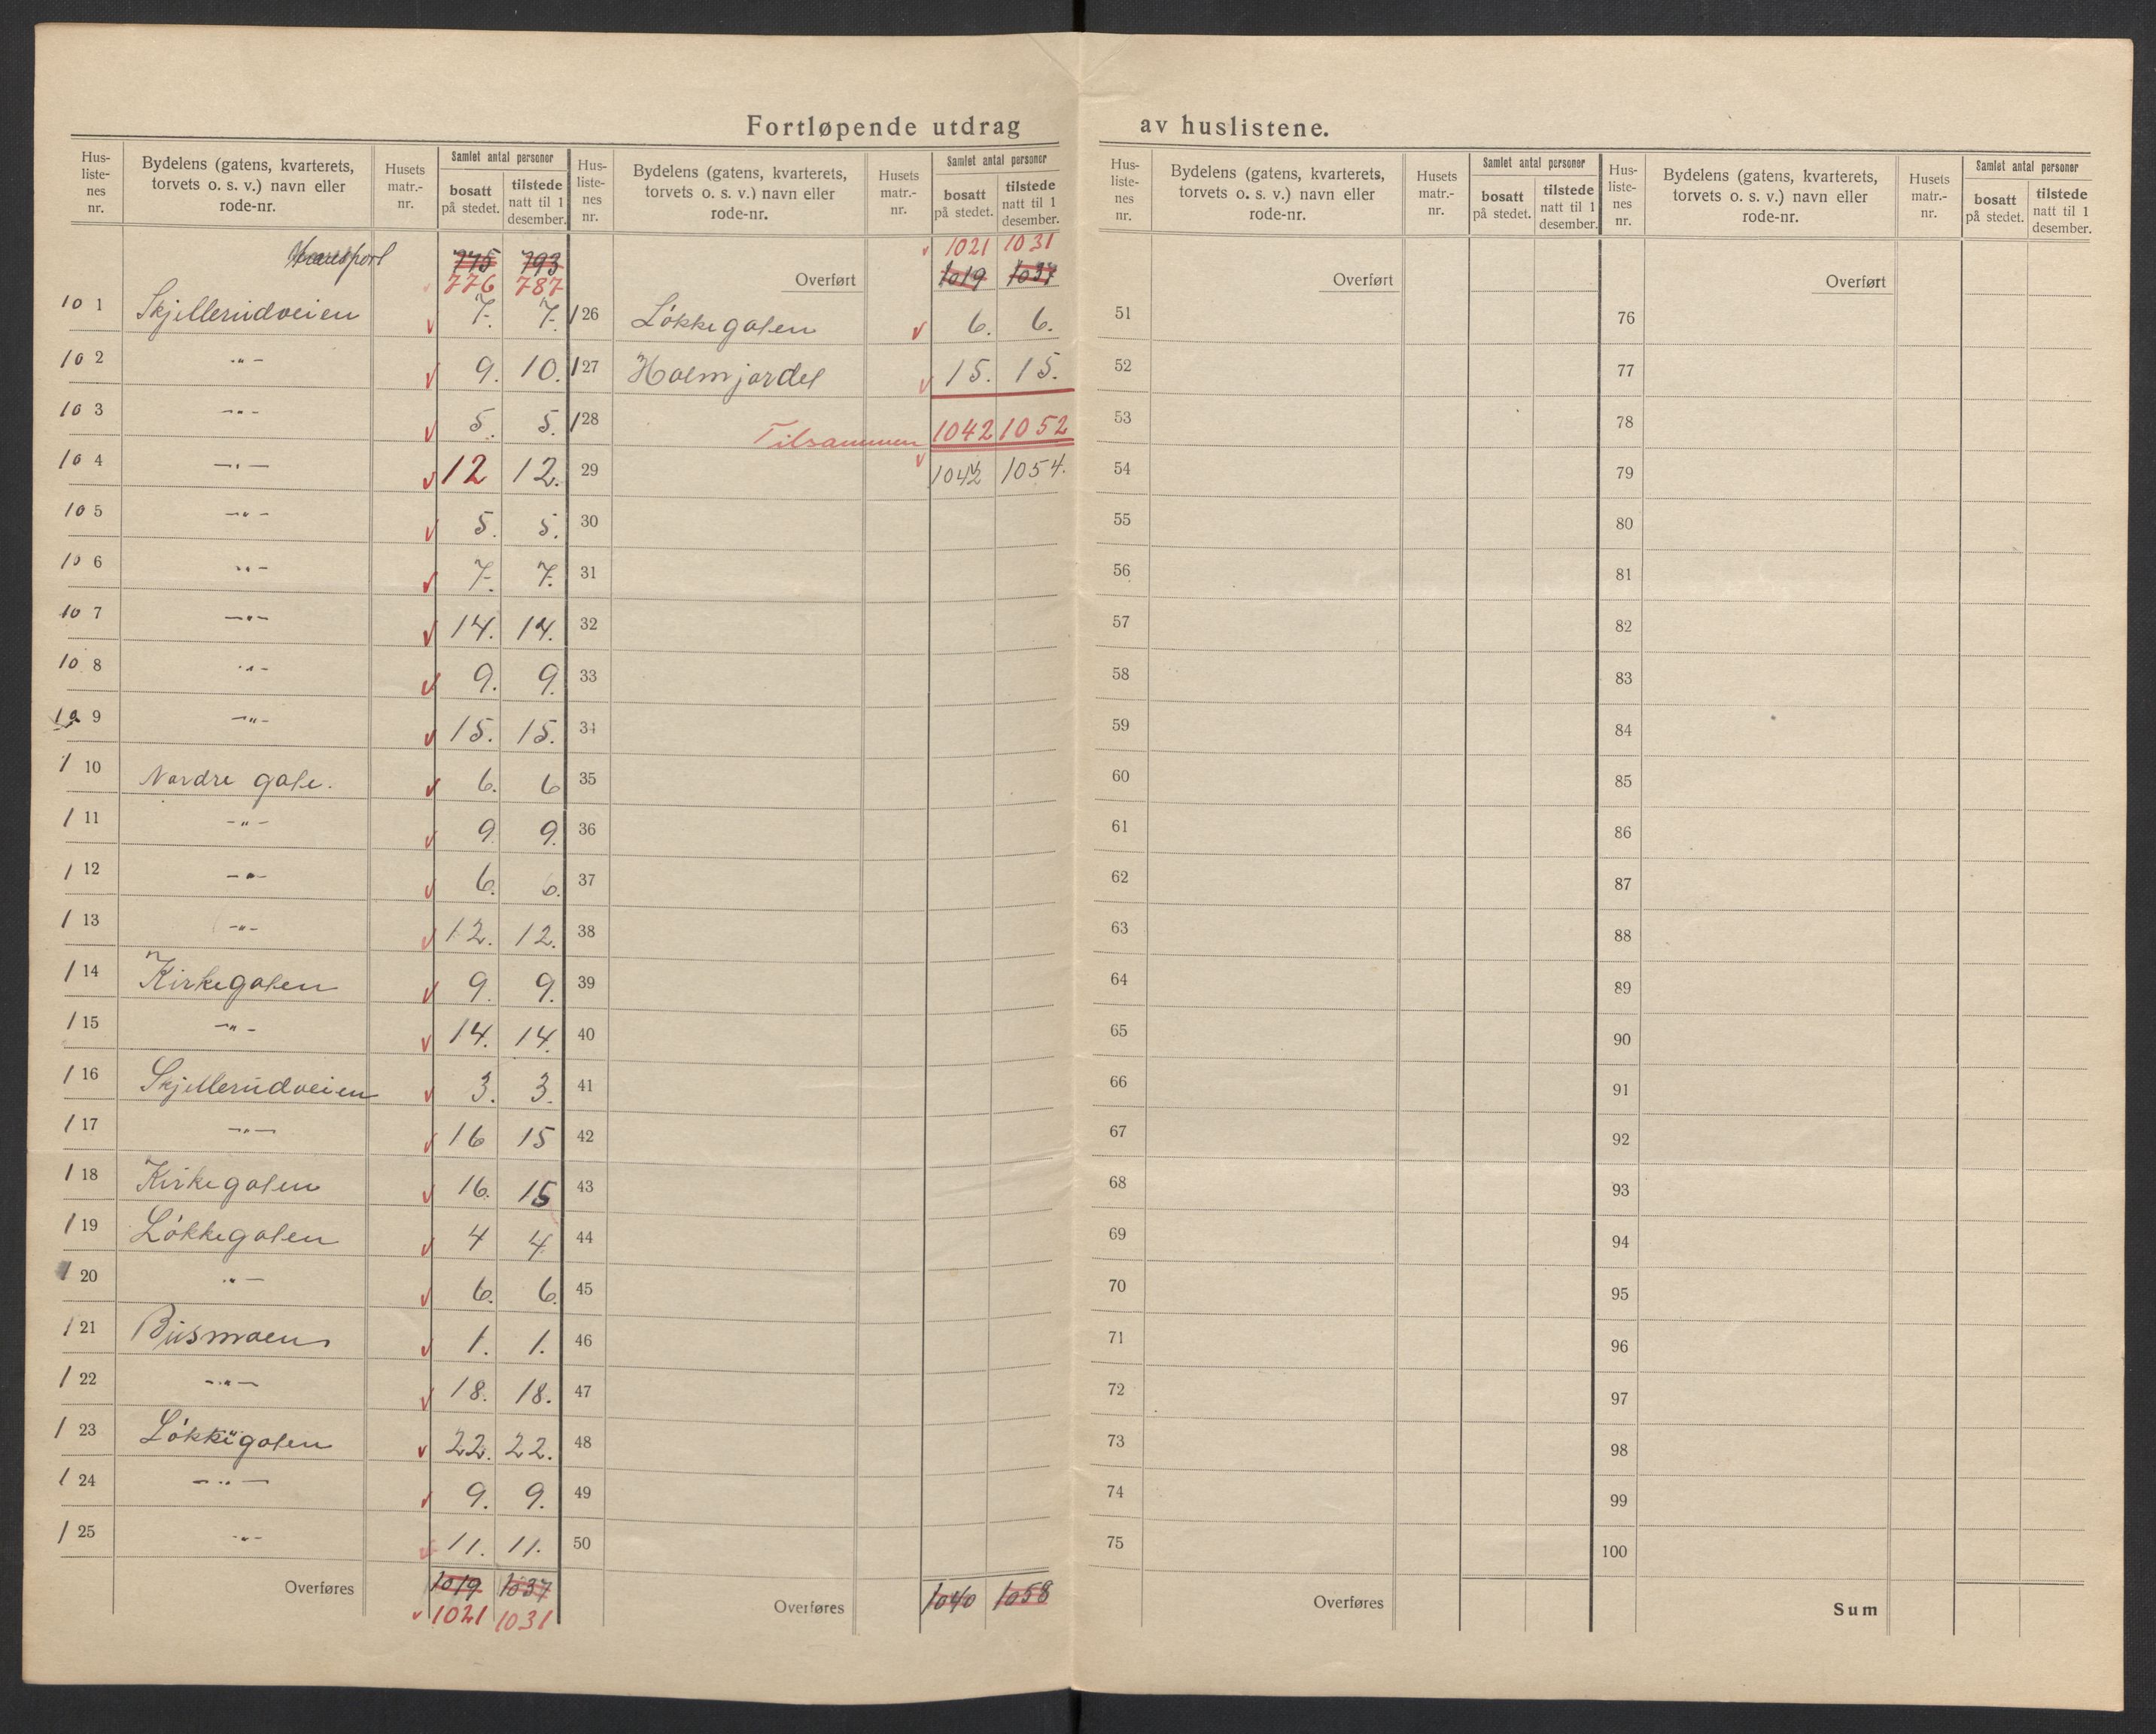 Fortløpende utdrag av huslistene.
Hus-listenes nr. | Bydelens (gatens, kvarterets, torvets o. s. v.) navn eller rode-nr. | Husets matr.-nr. | Samlet antal personer | bosatt på stedet. | tilstede natt til 1 desember.
Transport 775 793
776 787
10 1 Skjellerudveien 7. 7.
10 2 -"- 9. 10.
10 3 -"- 5. 5.
10 4 -"- 12 12.
10 5 -"- 5. 5.
10 6 -"- 7. 7.
10 7 -"- 14. 14.
10 8 -"- 9. 9.
10 9 -"- 15. 15.
1 10 Nordre gate. 6. 6
1 11 -"- 9. 9.
1 12 -"- 6. 6.
1 13 -"- 12. 12.
1 14 Kirkegaten 9. 9.
1 15 -"- 14. 14.
1 16 Skjellerudveien 3. 3.
1 17 -"- 16 15
1 18 Kirkegaten 16. 15
1 19 Løkkegaten 4 4
1 20 -"- 6. 6.
1 21 Busmoen 1. 1.
1 22 -"- 18. 18.
1 23 Løkkegaten 22. 22.
1 24 -"- 9. 9.
1 25 -"- 11. 11.
Overføres 1019 1037
1021 1031
Hus-listenes nr. | Bydelens (gatens, kvarterets, torvets o. s. v.) navn eller rode-nr. | Husets matr.-nr. | Samlet antal personer | bosatt på stedet. | tilstede natt til 1 desember.
1021 1031
Overført 1019 1037
126 Løkkegaten 6. 6.
127 Holmjordet 15. 15.
128 Tilsammen 1042 1052
29 1042 1054.
30
31
32
33
34
35
36
37
38
39
40
41
42
43
44
45
46
47
48
49
50
Overføres 1040 1058
Hus-listenes nr. | Bydelens (gatens, kvarterets, torvets o. s. v.) navn eller rode-nr. | Husets matr.-nr. | Samlet antal personer | bosatt på stedet. | tilstede natt til 1 desember.
Overført
51
52
53
54
55
56
57
58
59
60
61
62
63
64
65
66
67
68
69
70
71
72
73
74
75
Overføres
Hus-listenes nr. | Bydelens (gatens, kvarterets, torvets o. s. v.) navn eller rode-nr. | Husets matr.-nr. | Samlet antal personer | bosatt på stedet. | tilstede natt til 1 desember.
Overført
76
77
78
79
80
81
82
83
84
85
86
87
88
89
90
91
92
93
94
95
96
97
98
99
100
Sum